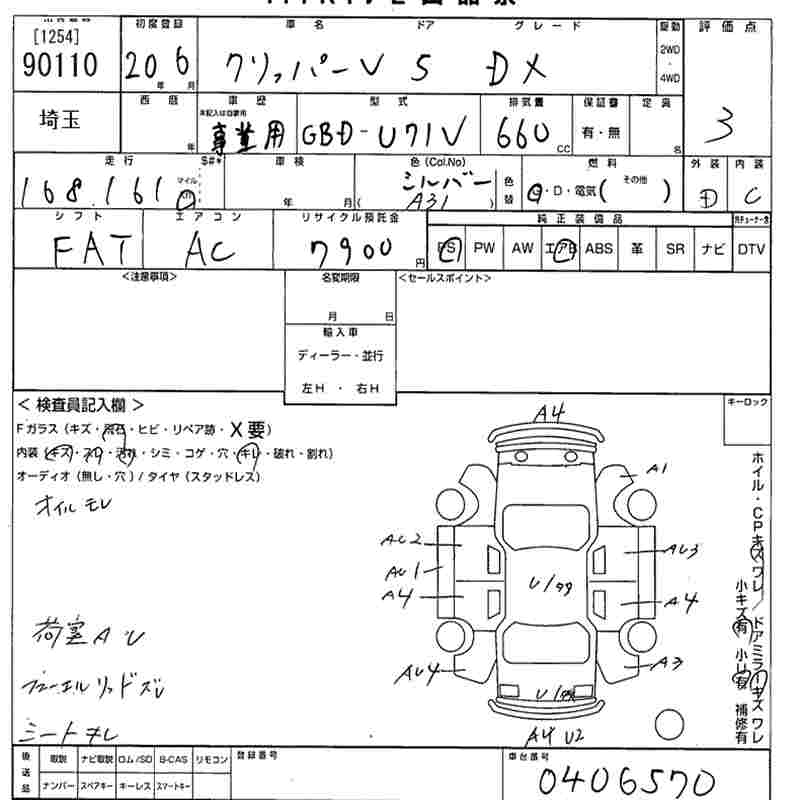 [1254] 初度登録 車名 ドア グレード 駆動 評価点
90110 20年 6月 クリッパーV 5 DX 2WD・4WD 3
西暦 車歴 型式 排気量 保証書 定員
埼玉 年 未記入は自家用 事業用 GBD-U71V 660cc 有・無 名
走行 $#* 車検 色(Col.No) 燃料 外装 内装
168.161 マイル km 年 月 シルバー A31 色替 G・D・電気(その他) D C
シフト エアコン リサイクル預託金 純正装備品
FAT AC 7900円 PS PW AW エアB ABS 革 SR ナビ DTV
<注意事項> 名変期限 <セールスポイント>
月 日
輸入車
ディーラー・並行
左H ・ 右H
< 検査員記入欄 > キーロック
Fガラス(キズ・飛石・ヒビ・リペア跡・X要)
内装(キズ・スレ・汚れ・シミ・コゲ・穴・キレ・破れ・割れ)
オーディオ(無し・穴)/タイヤ(スタッドレス)
オイルモレ
荷室AU
フューエルリッドズレ
シートキレ
A4
A1
AU2
AU3
AU1
A4
U/99
A4
AU4
A3
U/99
A4 U2
ホイル・CPキズワレ/ドアミラーキズワレ
小キズ有 小U有 補修有
後送品 取説 ナビ取説 ロム/SD B-CAS リモコン 登録番号 車台番号
ナンバー スペアキー キーレス スマートキー 0406570